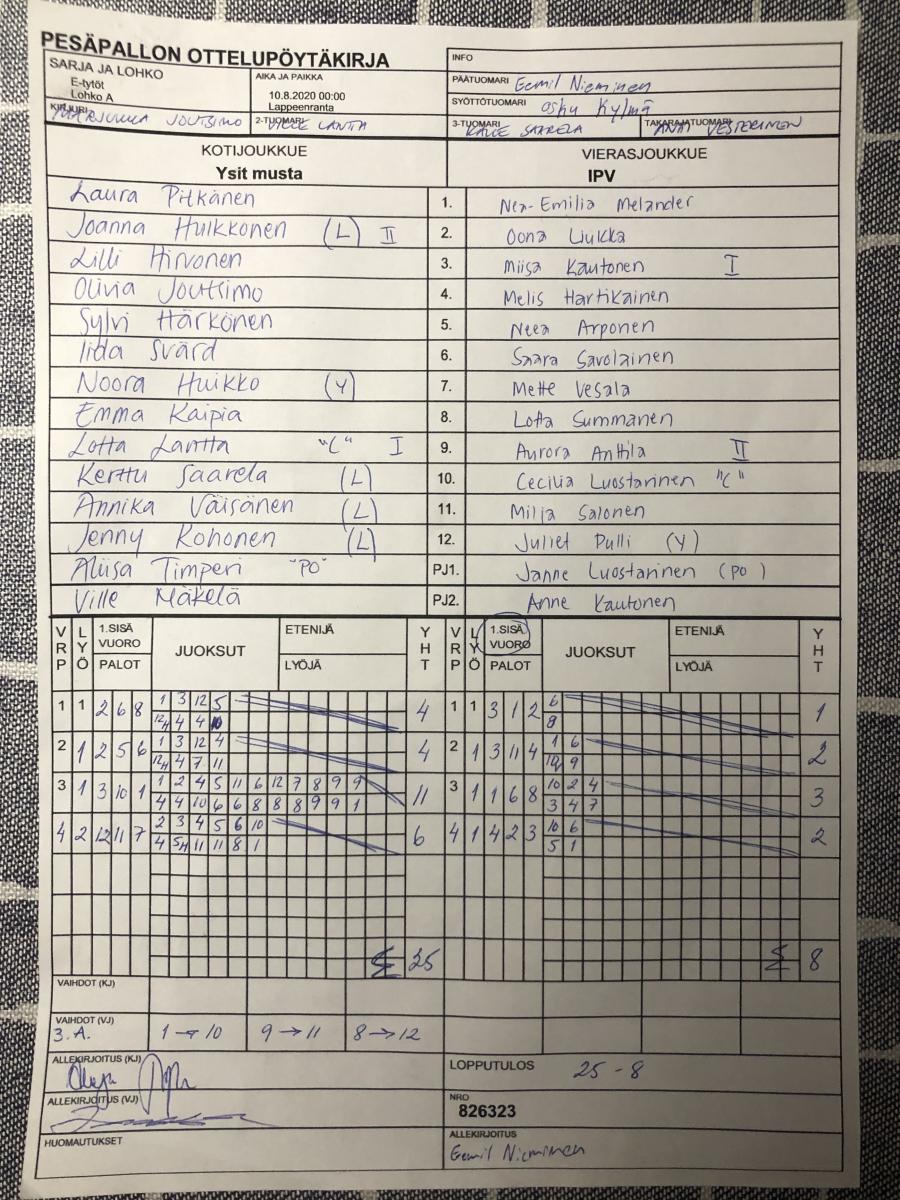 PESÄPALLON OTTELUPÖYTÄKIRJA
INFO
SARJA JA LOHKO
E-tytöt
Lohko A
AIKA JA PAIKKA
10.8.2020 00:00
Lappeenranta
PÄÄTUOMARI Eemil Nieminen
SYÖTTÖTUOMARI Osku Kylmä
KIRJURI MARJUKKA JOUTSIMO
2-TUOMARI VILLE LANTTA
3-TUOMARI KALLE SAARELA
TAKARAJATUOMARI VESTERINEN
KOTIJOUKKUE
Ysit musta
VIERASJOUKKUE
IPV
Laura Pitkänen 1. Nea-Emilia Melander
Joanna Hulkkonen (L) II 2. Oona Liukka
Lilli Hirvonen 3. Miisa Kautonen I
Olivia Joutsimo 4. Melis Hartikainen
Sylvi Härkönen 5. Neea Arponen
Iida Svärd 6. Saara Savolainen
Noora Huikko (Y) 7. Mette Vesala
Emma Kaipia 8. Lotta Summanen
Lotta Lantta "C" I 9. Aurora Anttila II
Kerttu Saarela (L) 10. Cecilia Luostarinen "C"
Annika Väisänen (L) 11. Milja Salonen
Jenny Kohonen (L) 12. Juliet Pulli (Y)
Aliisa Timperi "PO" PJ1. Janne Luostarinen (PO)
Ville Mäkelä PJ2. Anne Kautonen
VRP LYÖ 1.SISÄ VUORO PALOT JUOKSUT ETENIJÄ LYÖJÄ YHT VRP LYÖ 1.SISÄ VUORO PALOT JUOKSUT ETENIJÄ LYÖJÄ YHT
1 1 2 6 8 1 3 12 5 4 1 1 3 1 2 6 1
12H 4 4 10 8
2 1 2 5 6 1 3 12 4 4 2 1 3 11 4 1 6 2
12H 4 7 11 12 9
3 1 3 10 1 1 2 4 5 11 6 12 7 8 9 9 11 3 1 1 6 8 10 2 4 3
4 4 10 6 6 8 8 8 9 9 1 3 4 7
4 2 12 11 7 2 3 4 5 6 10 6 4 1 4 2 3 10 6 2
4 5H 11 11 8 1 5 1
Σ 25 Σ 8
VAIHDOT (KJ)
VAIHDOT (VJ)
3.A. 1 → 10 9 → 11 8 → 12
ALLEKIRJOITUS (KJ)
LOPPUTULOS 25 - 8
ALLEKIRJOITUS (VJ)
NRO
826323
HUOMAUTUKSET
ALLEKIRJOITUS
Eemil Nieminen